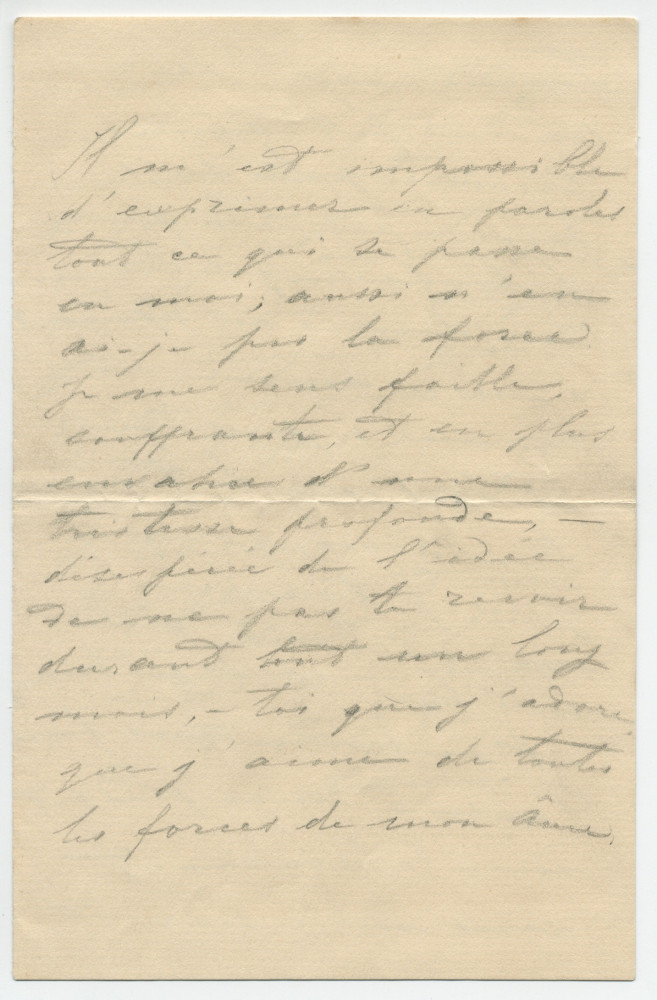 Il m'est impossible
d'exprimer en paroles
tout ce qui se passe
en moi; aussi n'en
ai-je pas la force.
Je me sens faible,
souffrante, et en plus
envahie d'une
tristesse profonde, –
désespérée de l'idée
de ne pas te revoir
durant tout un long
mois, – toi que j'adore,
que j'aime de toutes
les forces de mon âme.